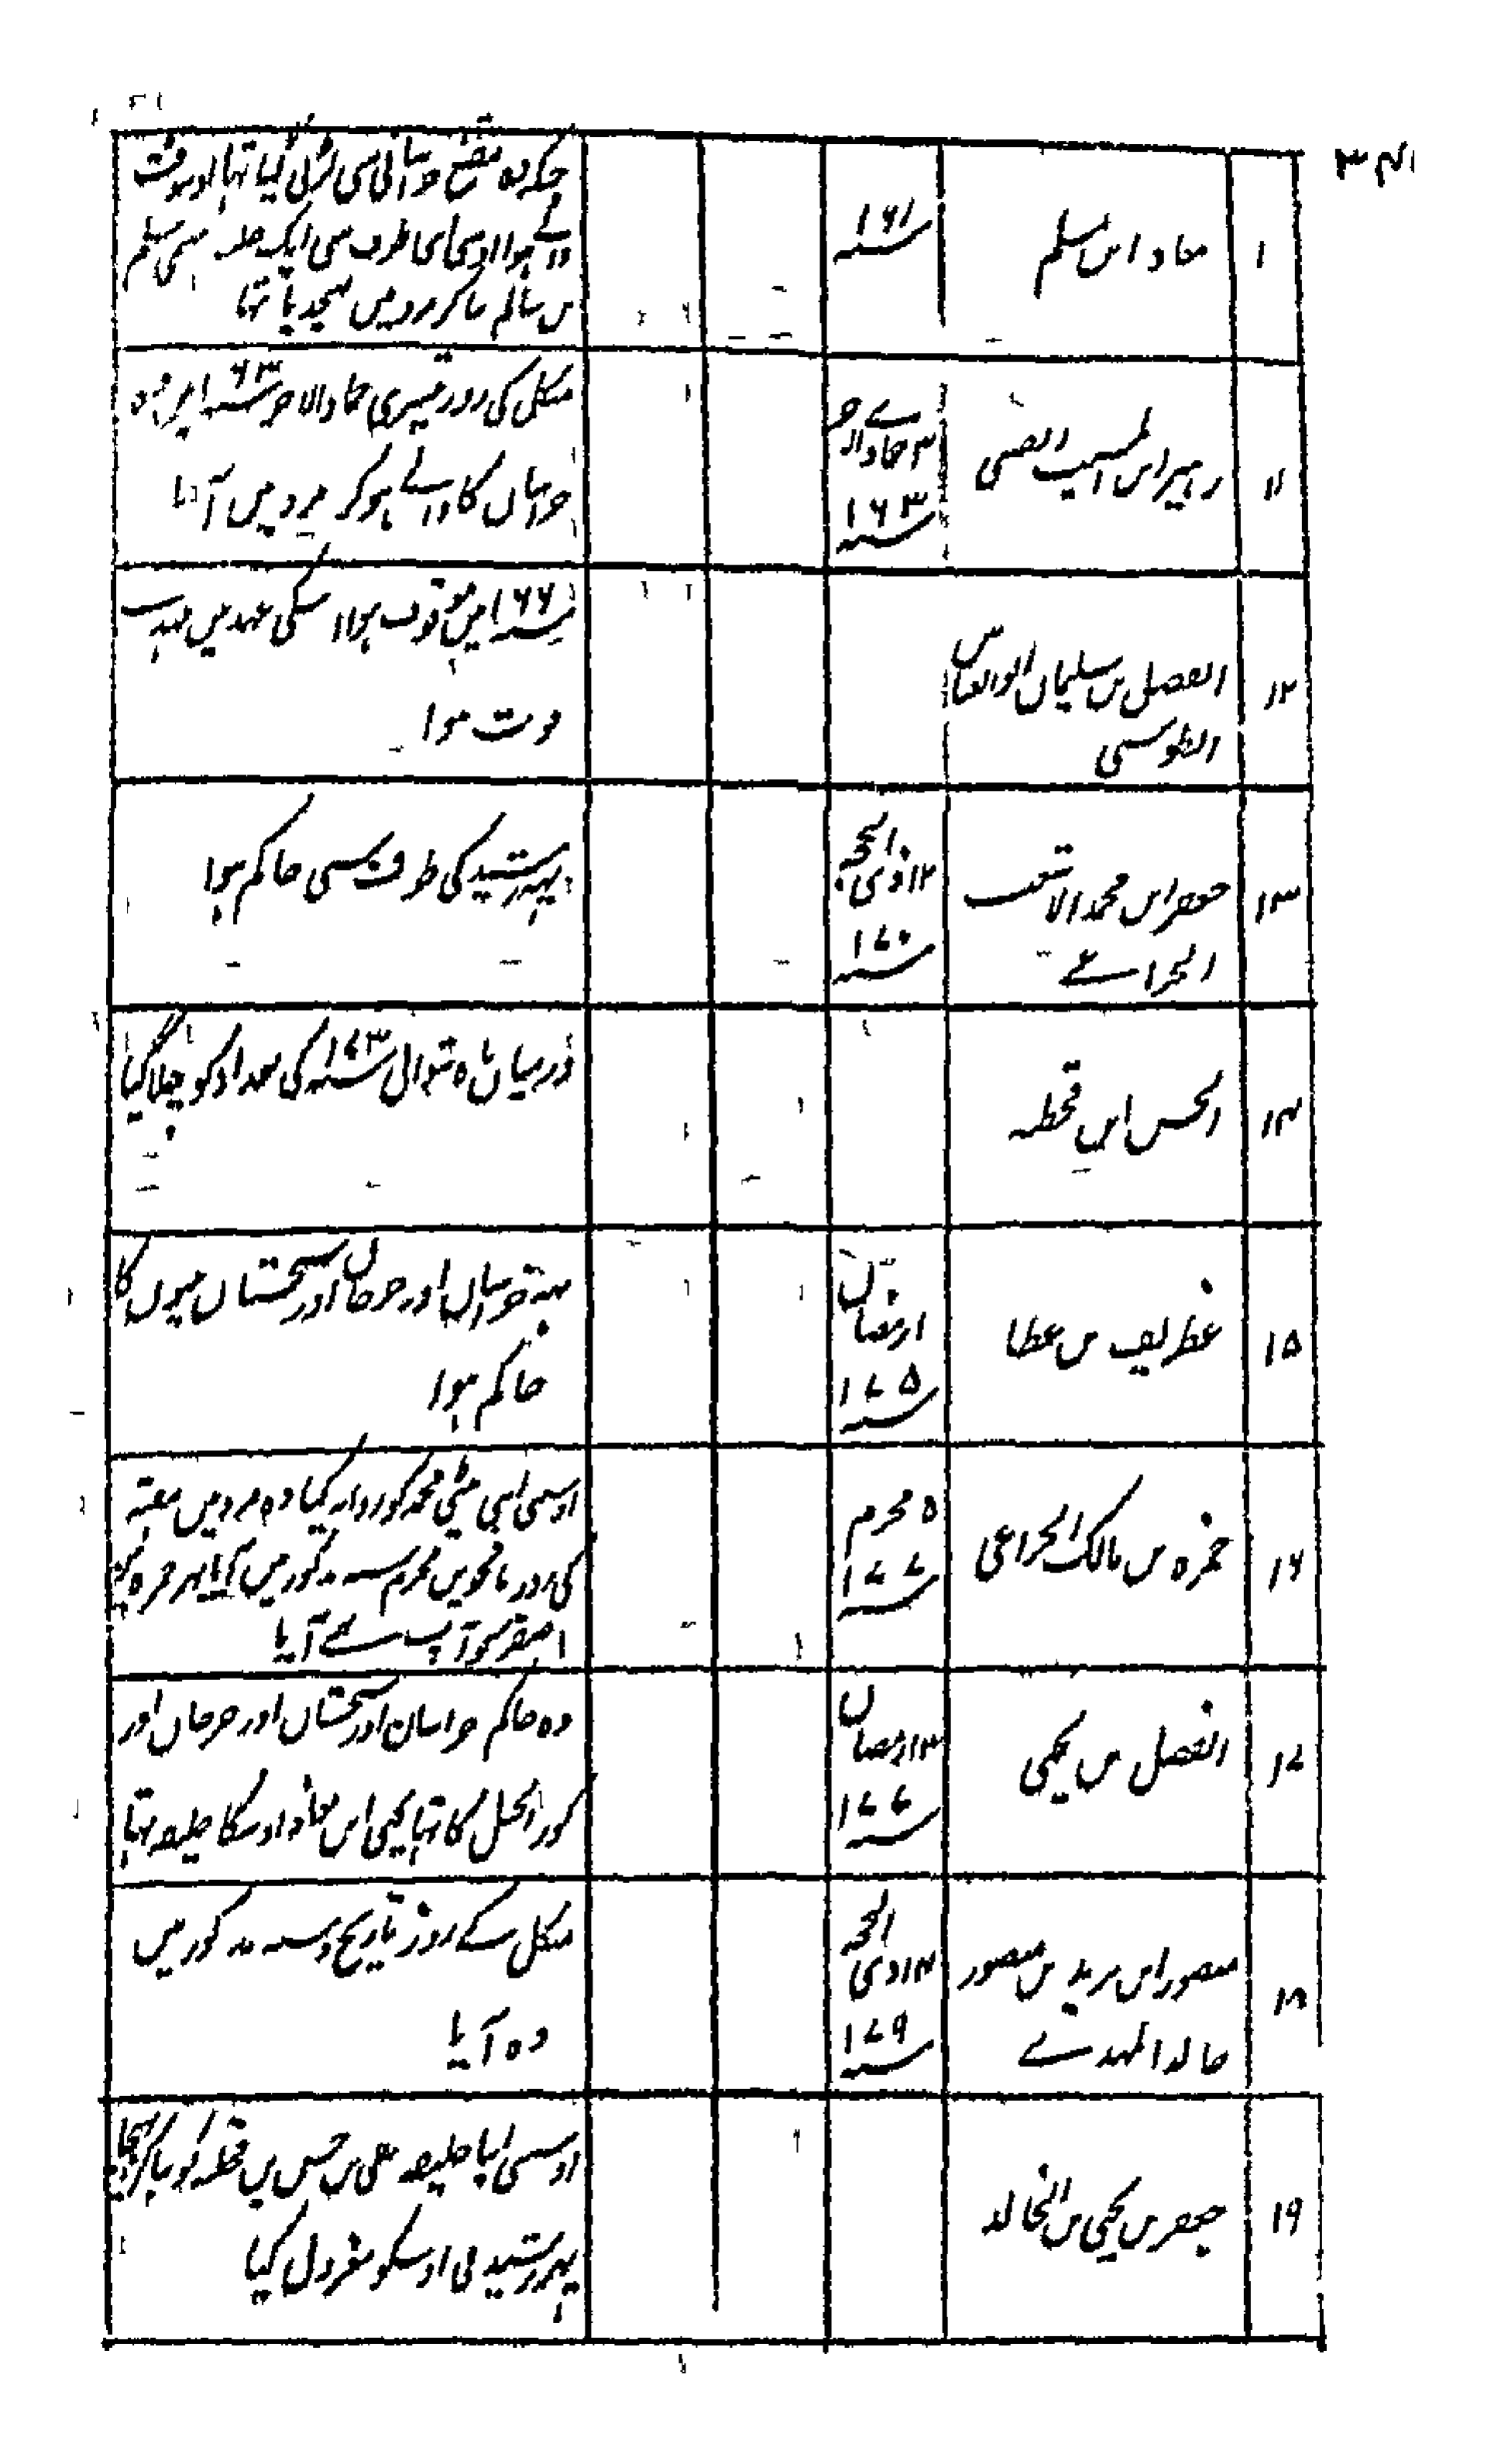 معاد ابن مسلم
سنہ ۱۶۱
خراسانی سی لڑنی گیا تہا
ہوا اوسکی طرف سی ایک
بن سالم مرو میں تہا
۱۱
زہیر ابن المسیب الضبی
۳ جمادالاخر
سنہ ۱۶۳
منگل کی روز تیسری جمادالاخر سنہ ۱۶۳ میں وہ
خراسان کا والے ہوکر مرو میں آیا
۱۲
الفضل بن سلیمان ابو العباس
الطوسی
سنہ ۱۶۶ میں موقوف ہوا اسکی عہد میں مہدے
فوت ہوا
۱۳
جعفر ابن محمد الاشعب
الخزاعے
۱۲ ذی الحجہ
سنہ ۱۷۰
یہہ رشید کی طرف سی حاکم ہوا
۱۴
الحسن ابن قحطبہ
درمیان ماہ شوال سنہ ۱۷۳ کی بغداد کو چلا گیا
۱۵
غطریف بن عطا
رمضان
سنہ ۱۷۵
یہہ خراسان اور جرجان اور سجستان تینوں کا
حاکم ہوا
۱۶
حمزہ بن مالک الخزاعی
۵ محرم
سنہ ۱۷۷
اوسی اپنی بیٹی محمد کو روانہ کیا وہ مرو میں ہفتہ
کی روز پانچویں محرم سنہ مذکور میں آیا
صفر کو آپ آیا
۱۷
الفضل بن یحیی
۱۳ رمضان
سنہ ۱۷۷
وہ حاکم خراسان اور سجستان اور جرجان اور
کور الجبل کا تہا یحیی ابن معاذ اوسکا خلیفہ تہا
۱۸
منصور ابن یزید بن منصور
خالد المہدے
۱۴ ذی الحجہ
سنہ ۱۷۹
منگل کے روز تاریخ و سنہ مذکور میں
وہ آیا
۱۹
جعفر بن یحیی بن الخالد
اوسی اپنا خلیفہ علی بن حسن بن قحطبہ کو بناکر بہیجا
پہر رشید نی اوسکو معزول کیا